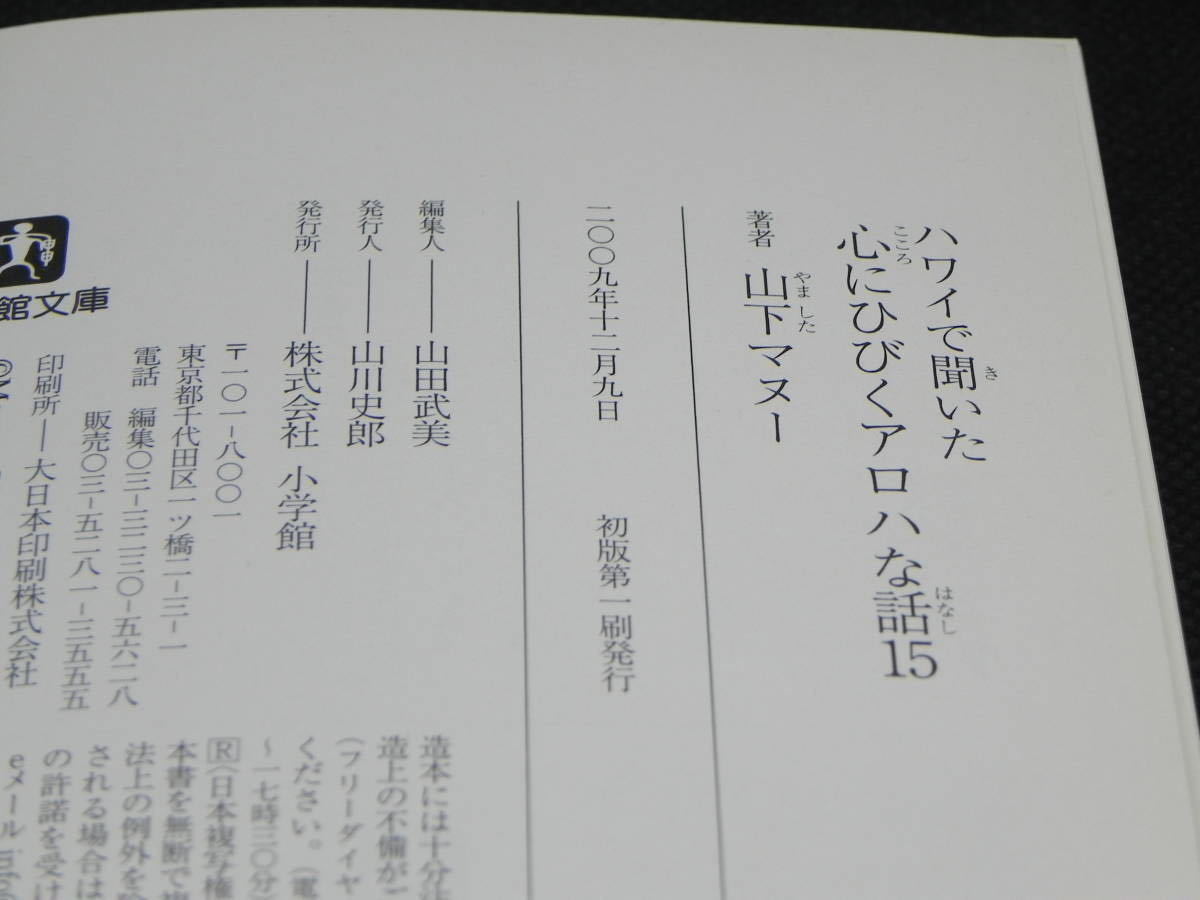 ハワイで聞いた
き
心にひびくアロハな話15
こころ
はなし
著者 山下マヌー
やました
二〇〇九年十二月九日 初版第一刷発行
編集人――山田武美
発行人――山川史郎
発行所――株式会社 小学館
〒一〇一-八〇〇一
東京都千代田区一ツ橋二-三-一
電話 編集〇三-三二三〇-五六二八
販売〇三-五二八一-三五五五
印刷所―大日本印刷株式会社
館文庫
造本には十分
造上の不備がご
(フリーダイヤ
ください。(電
~一七時三〇分)
R〈日本複写権
本書を無断で
法上の例外を
される場合は
の許諾を受け
eメール info